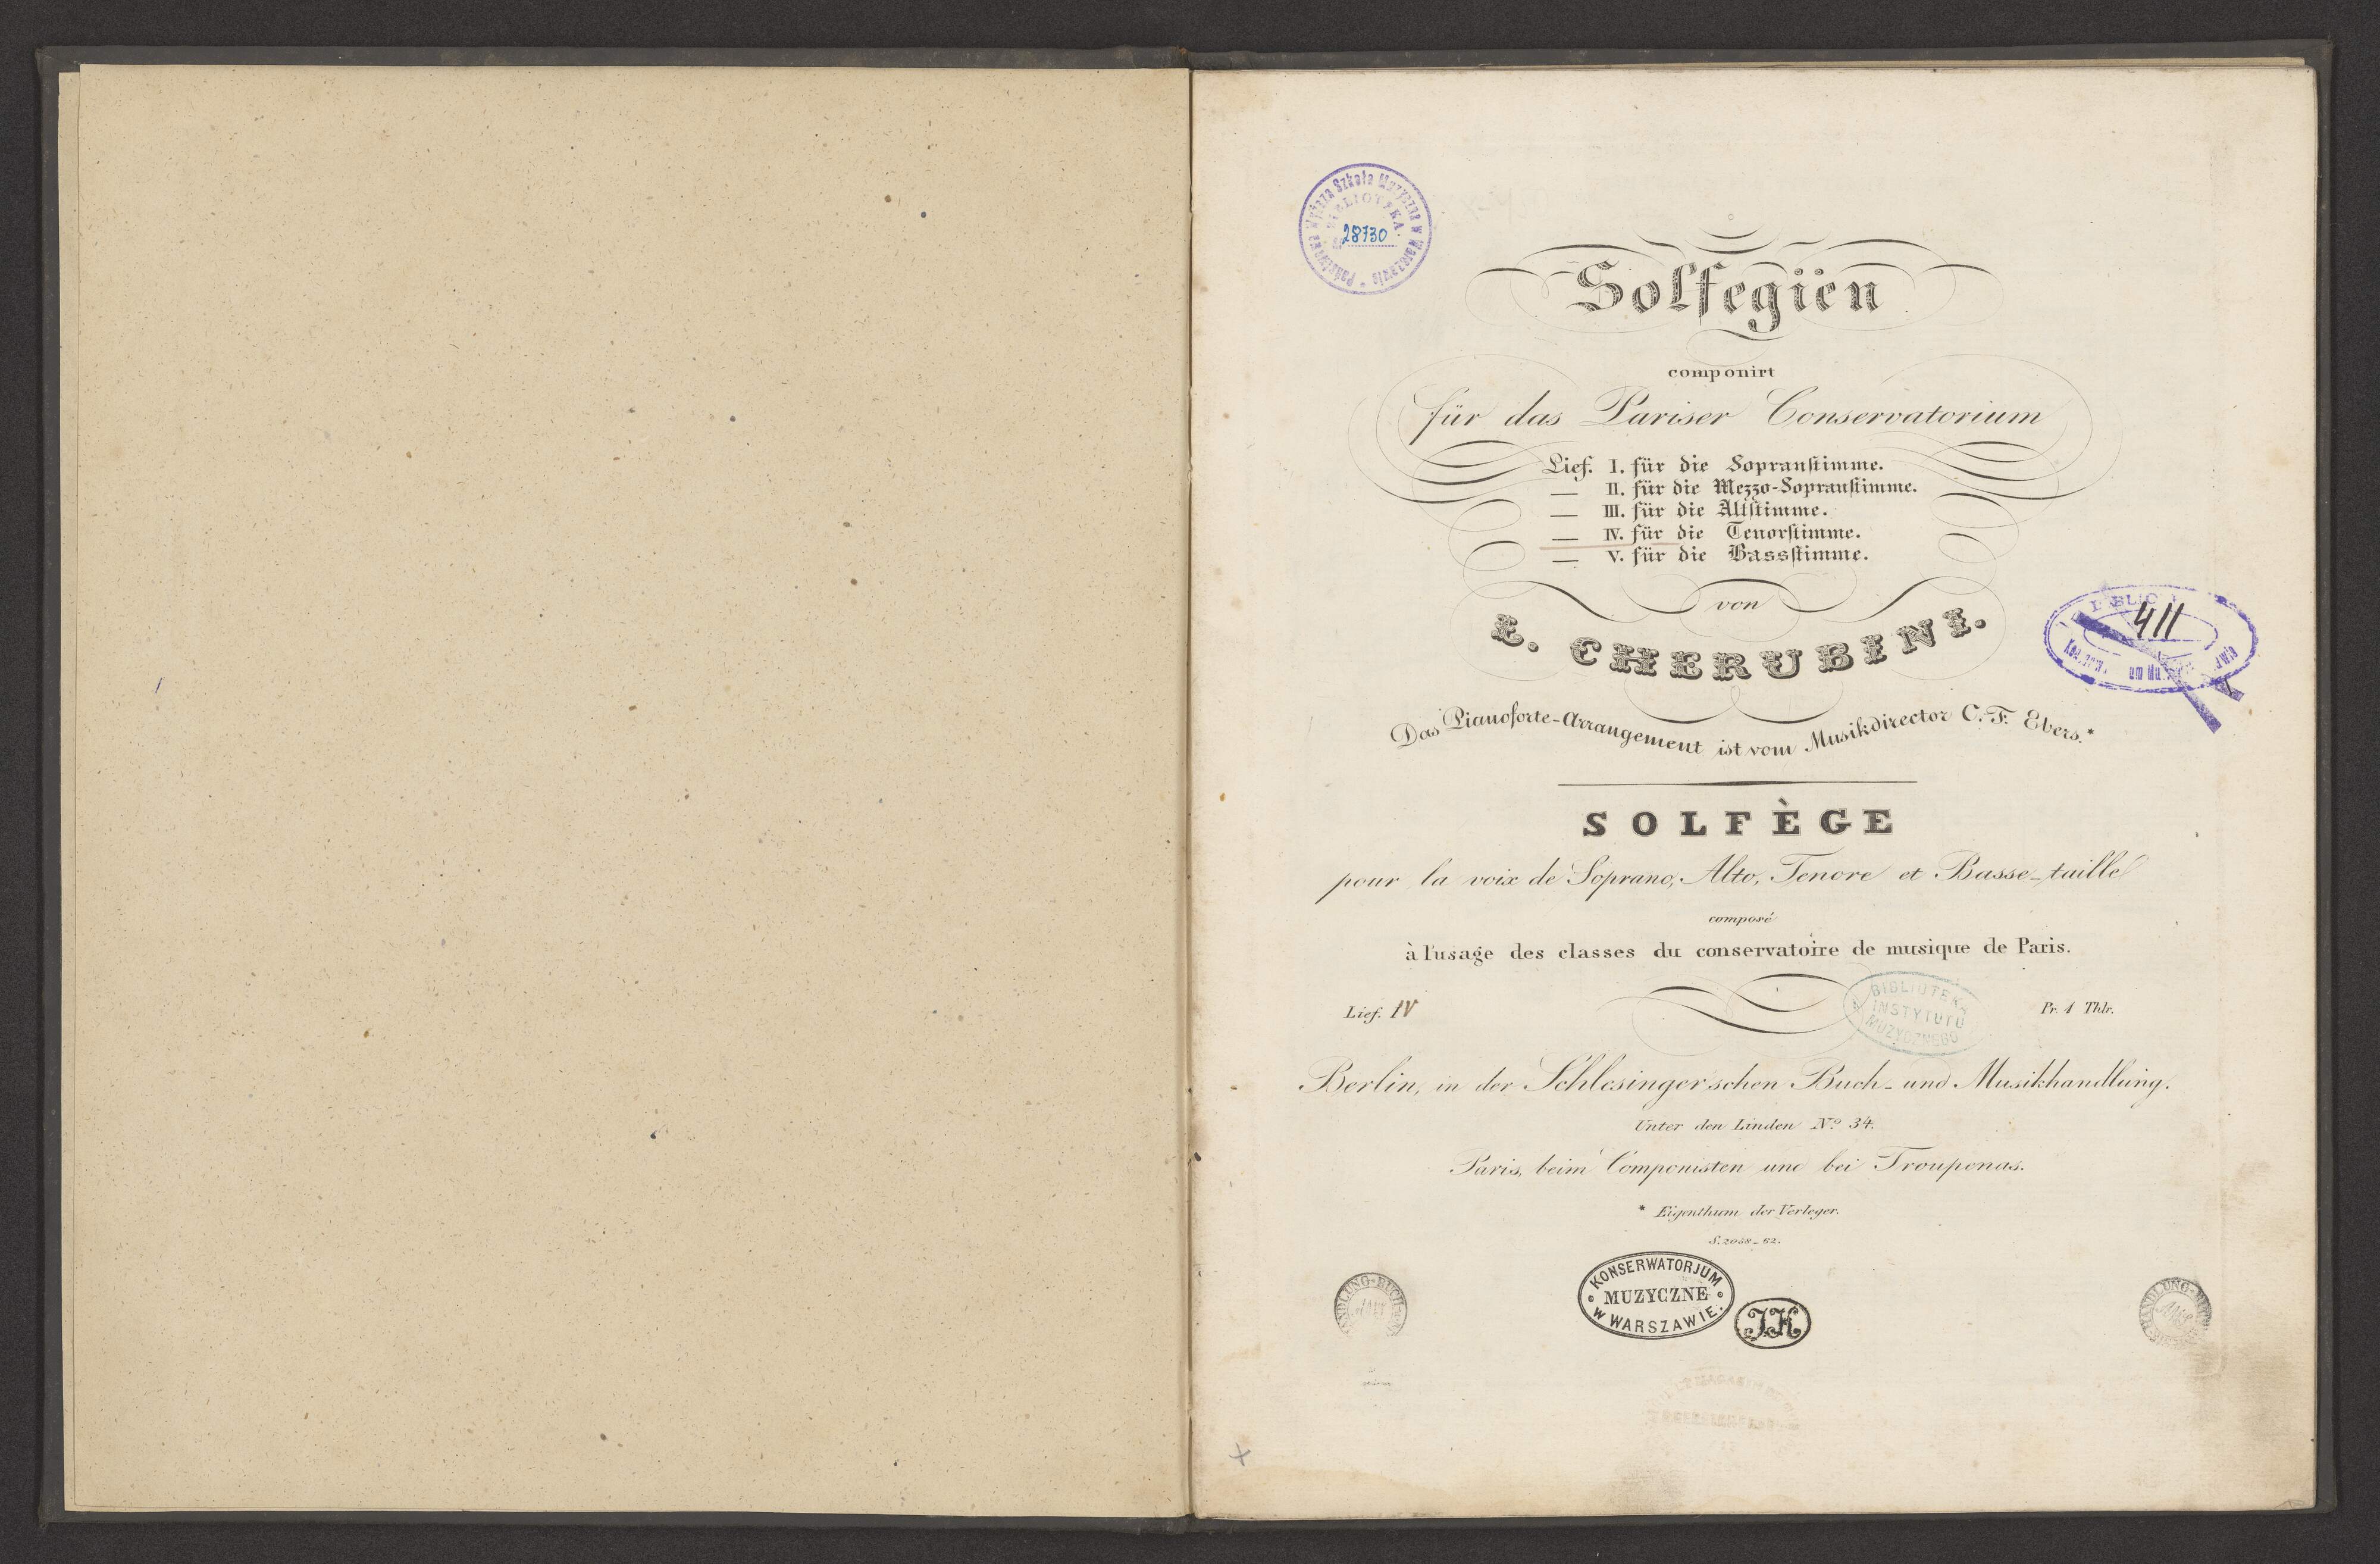 Państwowa Wyższa Szkoła Muzyczna w Warszawie
BIBLIOTEKA
28730
Solfegiën
componirt
für das Pariser Conservatorium
Lief. I. für die Sopranstimme.
— II. für die Mezzo-Sopranstimme.
— III. für die Altstimme.
— IV. für die Tenorstimme.
— V. für die Bassstimme.
von
L. CHERUBINI.
411
Das Pianoforte-Arrangement ist vom Musikdirector C. F. Ebers.*
SOLFÈGE
pour la voix de Soprano, Alto, Tenore et Basse-taille
composé
à l'usage des classes du conservatoire de musique de Paris.
Lief. IV
BIBLIOTEKA
INSTYTUTU
MUZYCZNEGO
Pr. 1 Thlr.
Berlin, in der Schlesinger'schen Buch- und Musikhandlung.
Unter den Linden Nº 34.
Paris, beim Componisten und bei Troupenas.
* Eigenthum der Verleger.
S. 2058-62.
KONSERWATORJUM
MUZYCZNE
W WARSZAWIE.
J.K